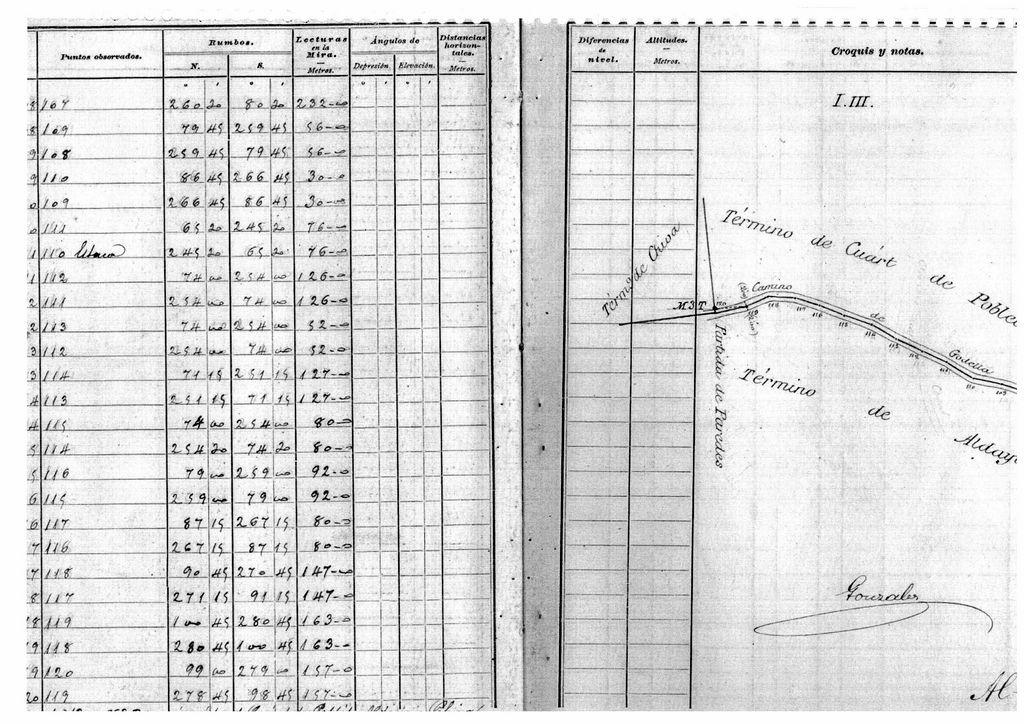 Puntos observados.
Rumbos.
N. S.
Lecturas en la Mira.
Metros.
Ángulos de
Depresión. Elevación.
Distancias horizon-tales.
Metros.
8 107 260 20 80 20 232-0
8 109 79 45 259 45 56-0
9 108 259 45 79 45 56-0
9 110 86 45 266 45 30-0
0 109 266 45 86 45 30-0
0 111 65 20 245 20 76-0
1 110 245 20 65 20 76-0
1 112 74 00 254 00 126-0
2 111 254 00 74 00 126-0
2 113 74 00 254 00 52-0
3 112 254 00 74 00 52-0
3 114 71 15 251 15 127-0
4 113 251 15 71 15 127-0
4 115 74 00 254 00 80-0
5 114 254 20 74 20 80-0
5 116 79 00 259 00 92-0
6 115 259 00 79 00 92-0
6 117 87 15 267 15 80-0
7 116 267 15 87 15 80-0
7 118 90 45 270 45 147-0
8 117 271 15 91 15 147-0
8 119 100 45 280 45 163-0
9 118 280 45 100 45 163-0
9 120 99 00 279 00 157-0
20 119 278 45 98 45 157-0
Diferencias de nivel.
Altitudes.
Metros.
Croquis y notas.
I.III.
Término de Cuárt de Poble
Térmo de Chiva
M3T.
Camino de Godella
Partida de Paredes
Término de Aldaya
Gonzalez
Al-